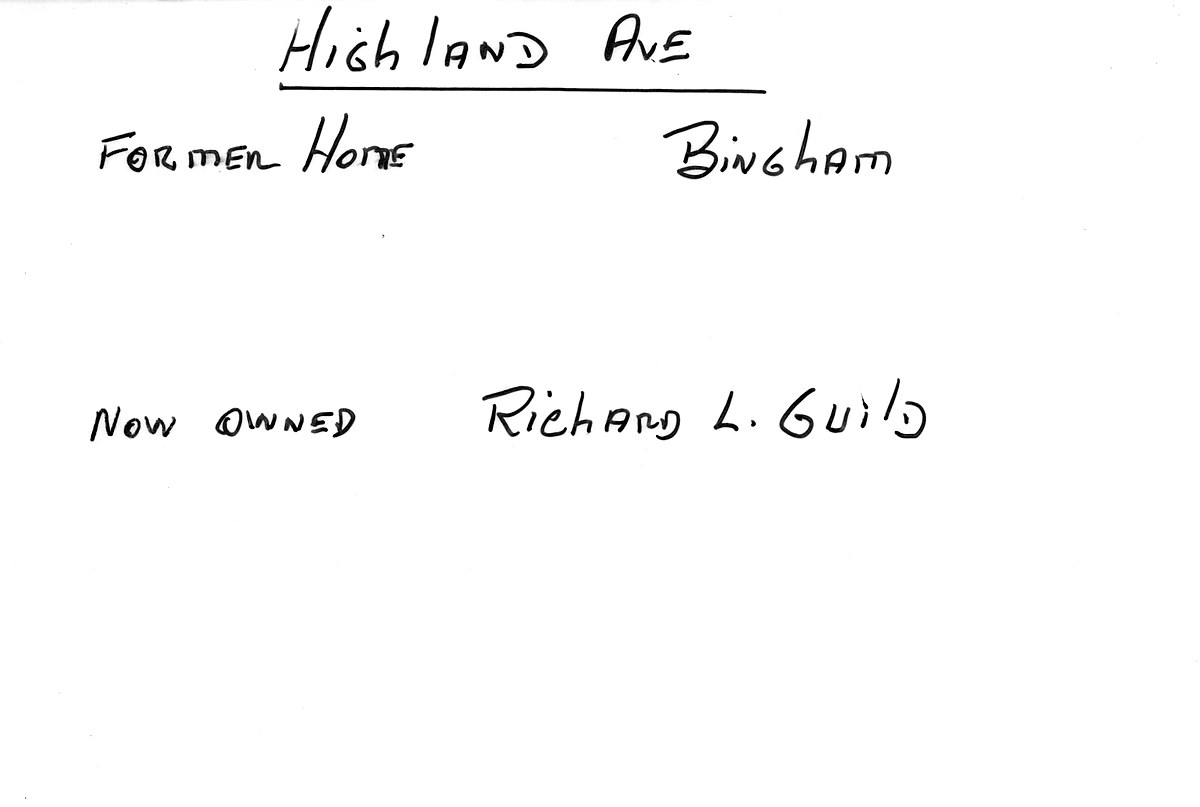 Highland Ave
Former Home Bingham
Now Owned Richard L. Guild